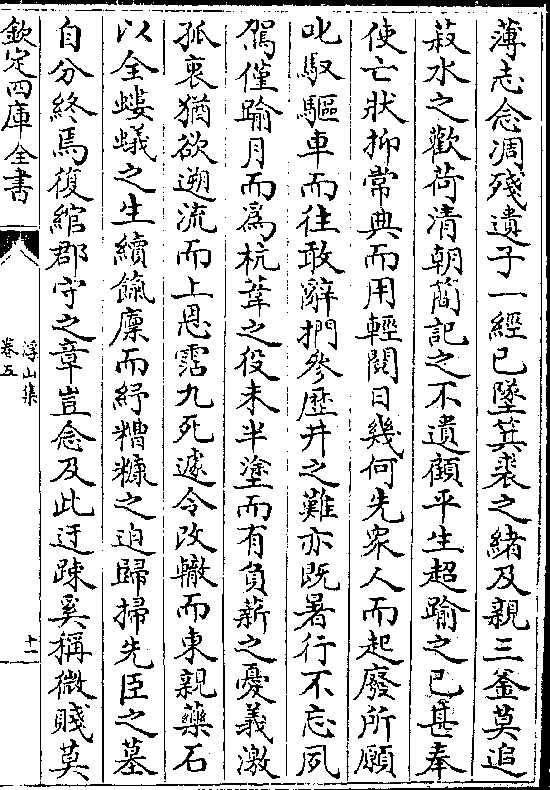 薄志念凋殘遺子一經已墜箕裘之緒及親三釜莫追
菽水之歡荷清朝簡記之不遺顧平生超踰之已甚奉
使亡狀抑常典而用輕閱日幾何先衆人而起廢所願
叱馭驅車而往敢辭捫參歷井之難亦既暑行不忘夙
駕僅踰月而爲杭葦之役未半塗而有負薪之憂義激
孤衷猶欲遡流而上恩霑九死遽令改轍而東親藥石
以全螻蟻之生續餼廩而紓糟糠之迫歸掃先臣之墓
自分終焉復綰郡守之章豈念及此迂踈奚稱微賤莫
欽定四庫全書
浮山集
卷五
十一